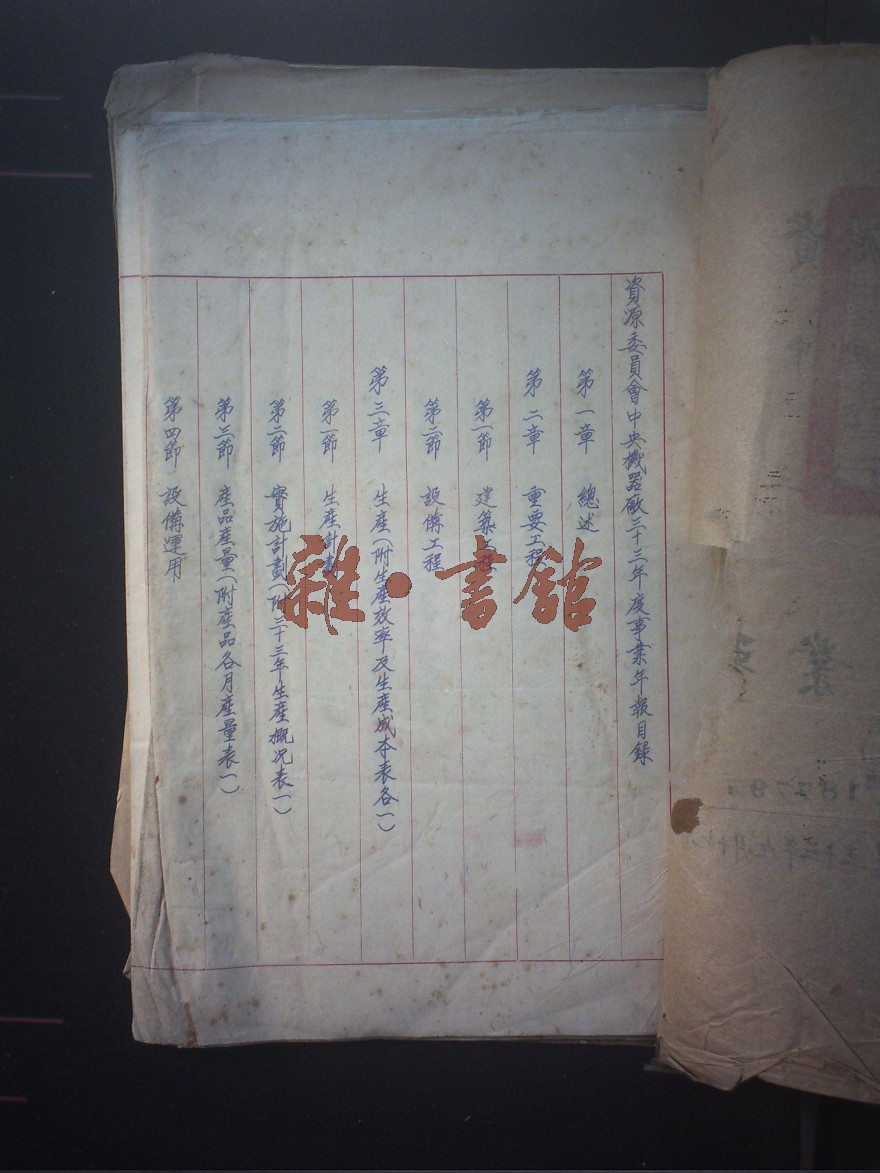 資源委員會中央機器廠三十三年度事業年報目錄
第一章 總述
第二章 重要工程
第一節 建築工程
第二節 設備工程
第三章 生產(附生產效率及生產成本表各一)
第一節 生產計劃
第二節 實施計劃(附三十三年生產概況表一)
第三節 產品產量(附產品各月產量表一)
第四節 設備運用
雜·書館